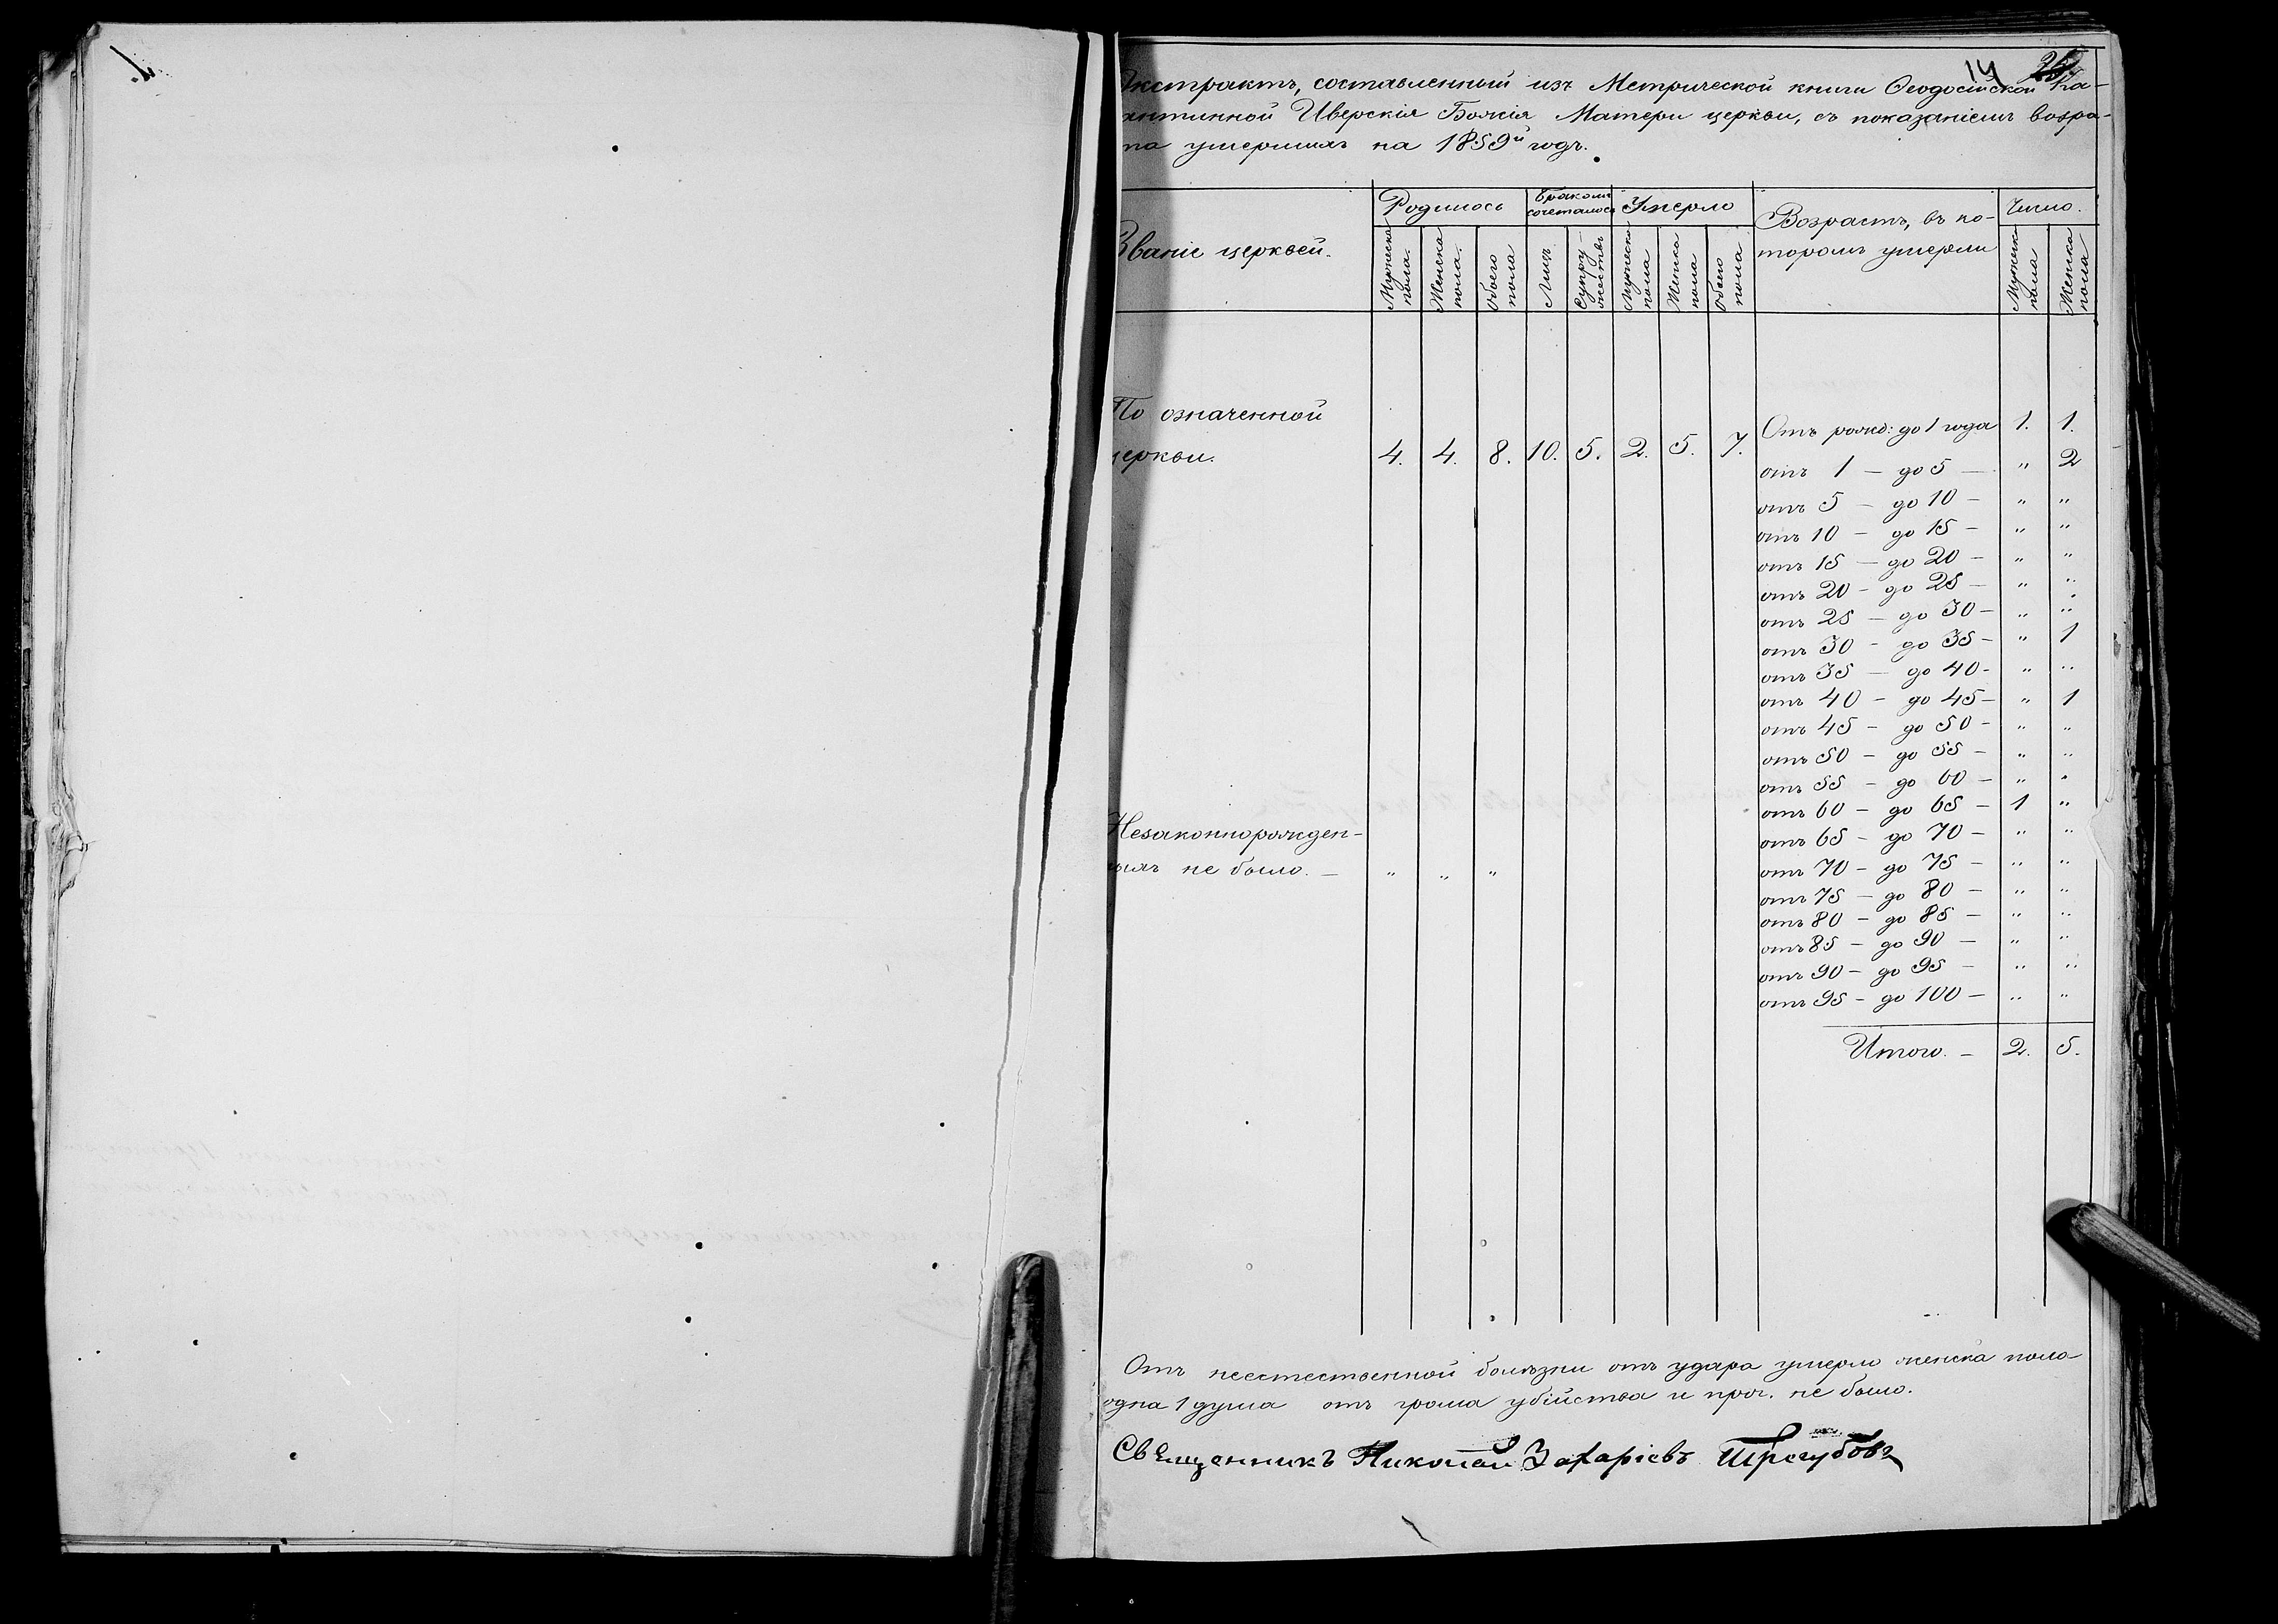 14 26
Экстрактъ, составленный изъ Метрической книги Ѳеодосійской Ка-
антинной Иверскія Божія Матери церкви, съ показаніемъ возра-
та умершихъ на 1859й годъ.
Званіе церквей.
Родилось
Бракомъ сочеталось
Умерло
Возрастъ, въ ко-
торомъ умерли
Число.
Мужеска пола.
Женска пола.
Обоего пола
Лицъ
Супру-жествъ
Мужеска пола
Женска пола
Обоего пола
Мужеск. пола
Женска пола
По означенной
церкви. 4. 4. 8. 10. 5. 2. 5. 7.
Отъ рожд: до 1 года 1. 1.
отъ 1 — до 5 — " 2
отъ 5 — до 10 — " "
отъ 10 — до 15 — " "
отъ 15 — до 20 — " "
отъ 20 — до 25 — " "
отъ 25 — до 30 — " "
отъ 30 — до 35 — " 1
отъ 35 — до 40 — " "
отъ 40 — до 45 — " 1
отъ 45 — до 50 — " "
отъ 50 — до 55 — " "
отъ 55 — до 60 — " "
отъ 60 — до 65 — 1 "
отъ 65 — до 70 — " "
отъ 70 — до 75 — " "
отъ 75 — до 80 — " "
отъ 80 — до 85 — " "
отъ 85 — до 90 — " "
отъ 90 — до 95 — " "
отъ 95 — до 100 — " "
Незаконнорожден-
ныхъ не было. — " " "
Итого. — 2. 5.
Отъ неестественной болѣзни отъ удара умерло женска пола
одна 1 душа отъ грома убійства и проч. не было.
Священникъ Николай Захаріевъ Трегубовъ